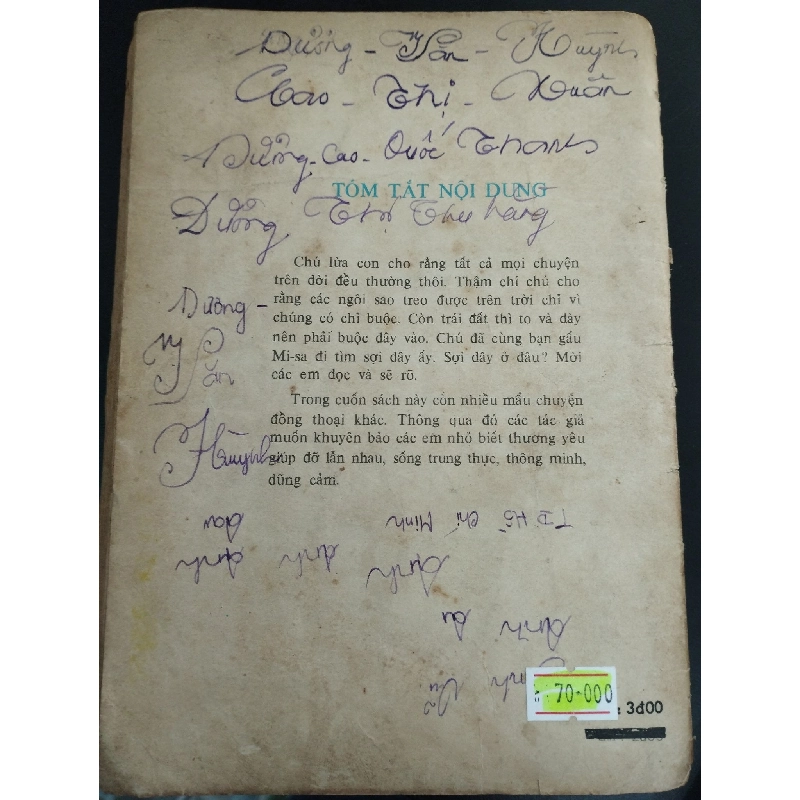 Dương - Văn - Huỳnh
Cao - Thị - Xuân
Dương - Cao - Quốc Thanh
TÓM TẮT NỘI DUNG
Dương Thị Thu hằng
Chú lừa con cho rằng tất cả mọi chuyện
trên đời đều thường thôi. Thậm chí chú cho
rằng các ngôi sao treo được trên trời chỉ vì
chúng có chỉ buộc. Còn trái đất thì to và dày
nên phải buộc dây vào. Chú đã cùng bạn gấu
Mi-sa đi tìm sợi dây ấy. Sợi dây ở đâu? Mời
các em đọc và sẽ rõ.
Dương -
Văn
Huỳnh
Trong cuốn sách này còn nhiều mẩu chuyện
đồng thoại khác. Thông qua đó các tác giả
muốn khuyên bảo các em nhỏ biết thương yêu
giúp đỡ lẫn nhau, sống trung thực, thông minh,
dũng cảm.
Hồ Chí Minh
70-000
: 3đ00